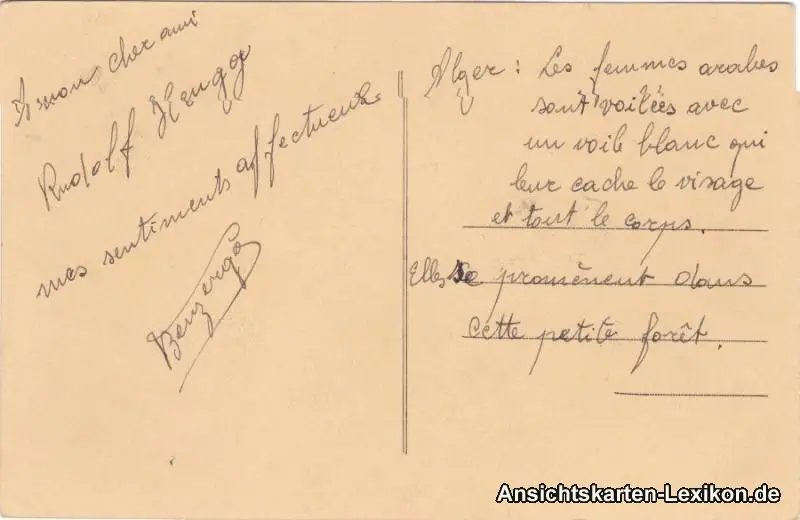 A mon cher ami
Rudolf
mes sentiments affectueux
Alger : Les femmes arabes
sont voilées avec
un voile blanc qui
leur cache le visage
et tout le corps.
Elles se promènent dans
cette petite forêt.
Ansichtskarten-Lexikon.de